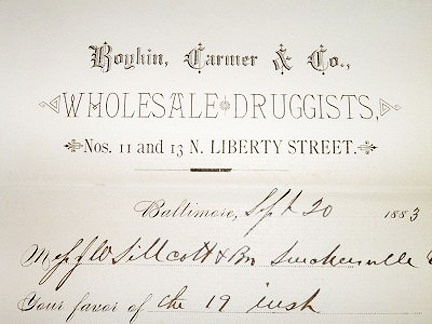 Boykin, Carmer & Co.,
WHOLESALE DRUGGISTS,
Nos. 11 and 13 N. LIBERTY STREET.
Baltimore, Sept 20 1883
Mess J W Sillcott & Bro Snickersville
Your favor of the 19 inst